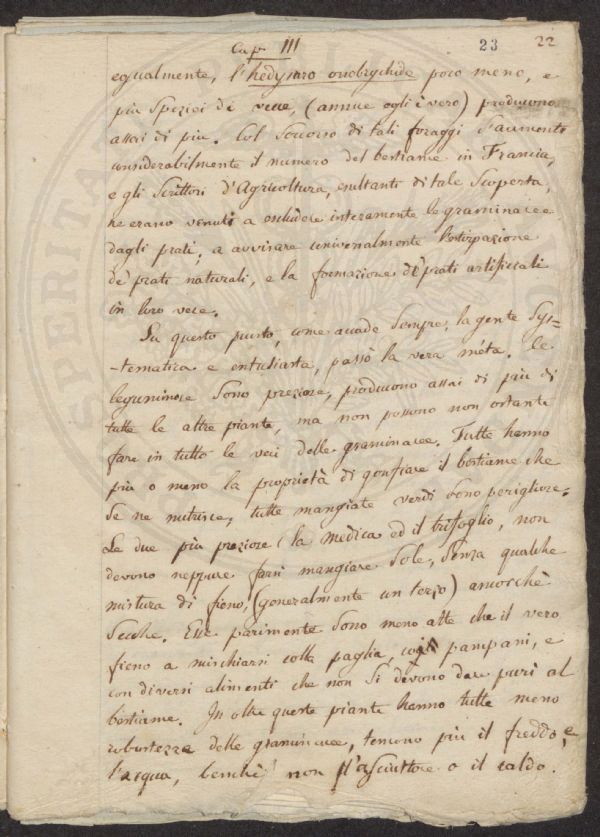 Cap. III 23 22
egualmente, l'hedysaro onobrychide poco meno, e
più spezici de vecce, (annue egli è vero) producono
assai di più. Col soccorso di tali foraggi s'aumentò
considerabilmente il numero del bestiame in Francia,
e gli Scrittori d'Agricoltura, esultanti di tale scoperta,
ne erano venuti a escludere interamente le graminacee
dagli prati; a avvisare universalmente l'estirpazione
de' prati naturali, e la formazione de' prati artifiziali
in loro vece.
Su questo punto, come accade sempre, la gente sys=
=tematica e entusiasta, passò la vera méta. Le
leguminose sono preziose, producono assai di più di
tutte le altre piante, ma non possono non ostante
fare in tutto le veci delle graminacee. Tutte hanno
più o meno la proprietà di gonfiare il bestiame che
se ne nutrisce, tutte mangiate verdi sono perigliose.
Le due più preziose (la medica ed il trifoglio, non
devono neppure farsi mangiare sole, senza qualche
mistura di fieno, (generalmente un terzo) ancorchè
secche. Esse parimente sono meno atte che il vero
fieno a mischiarsi colla paglia, cogli pampani, e
con diversi alimenti che non si devono dare puri al
bestiame. In oltre queste piante hanno tutte meno
robustezza delle graminacee, temono più il freddo, e
l'acqua, benchè non l'asciuttore o il caldo.